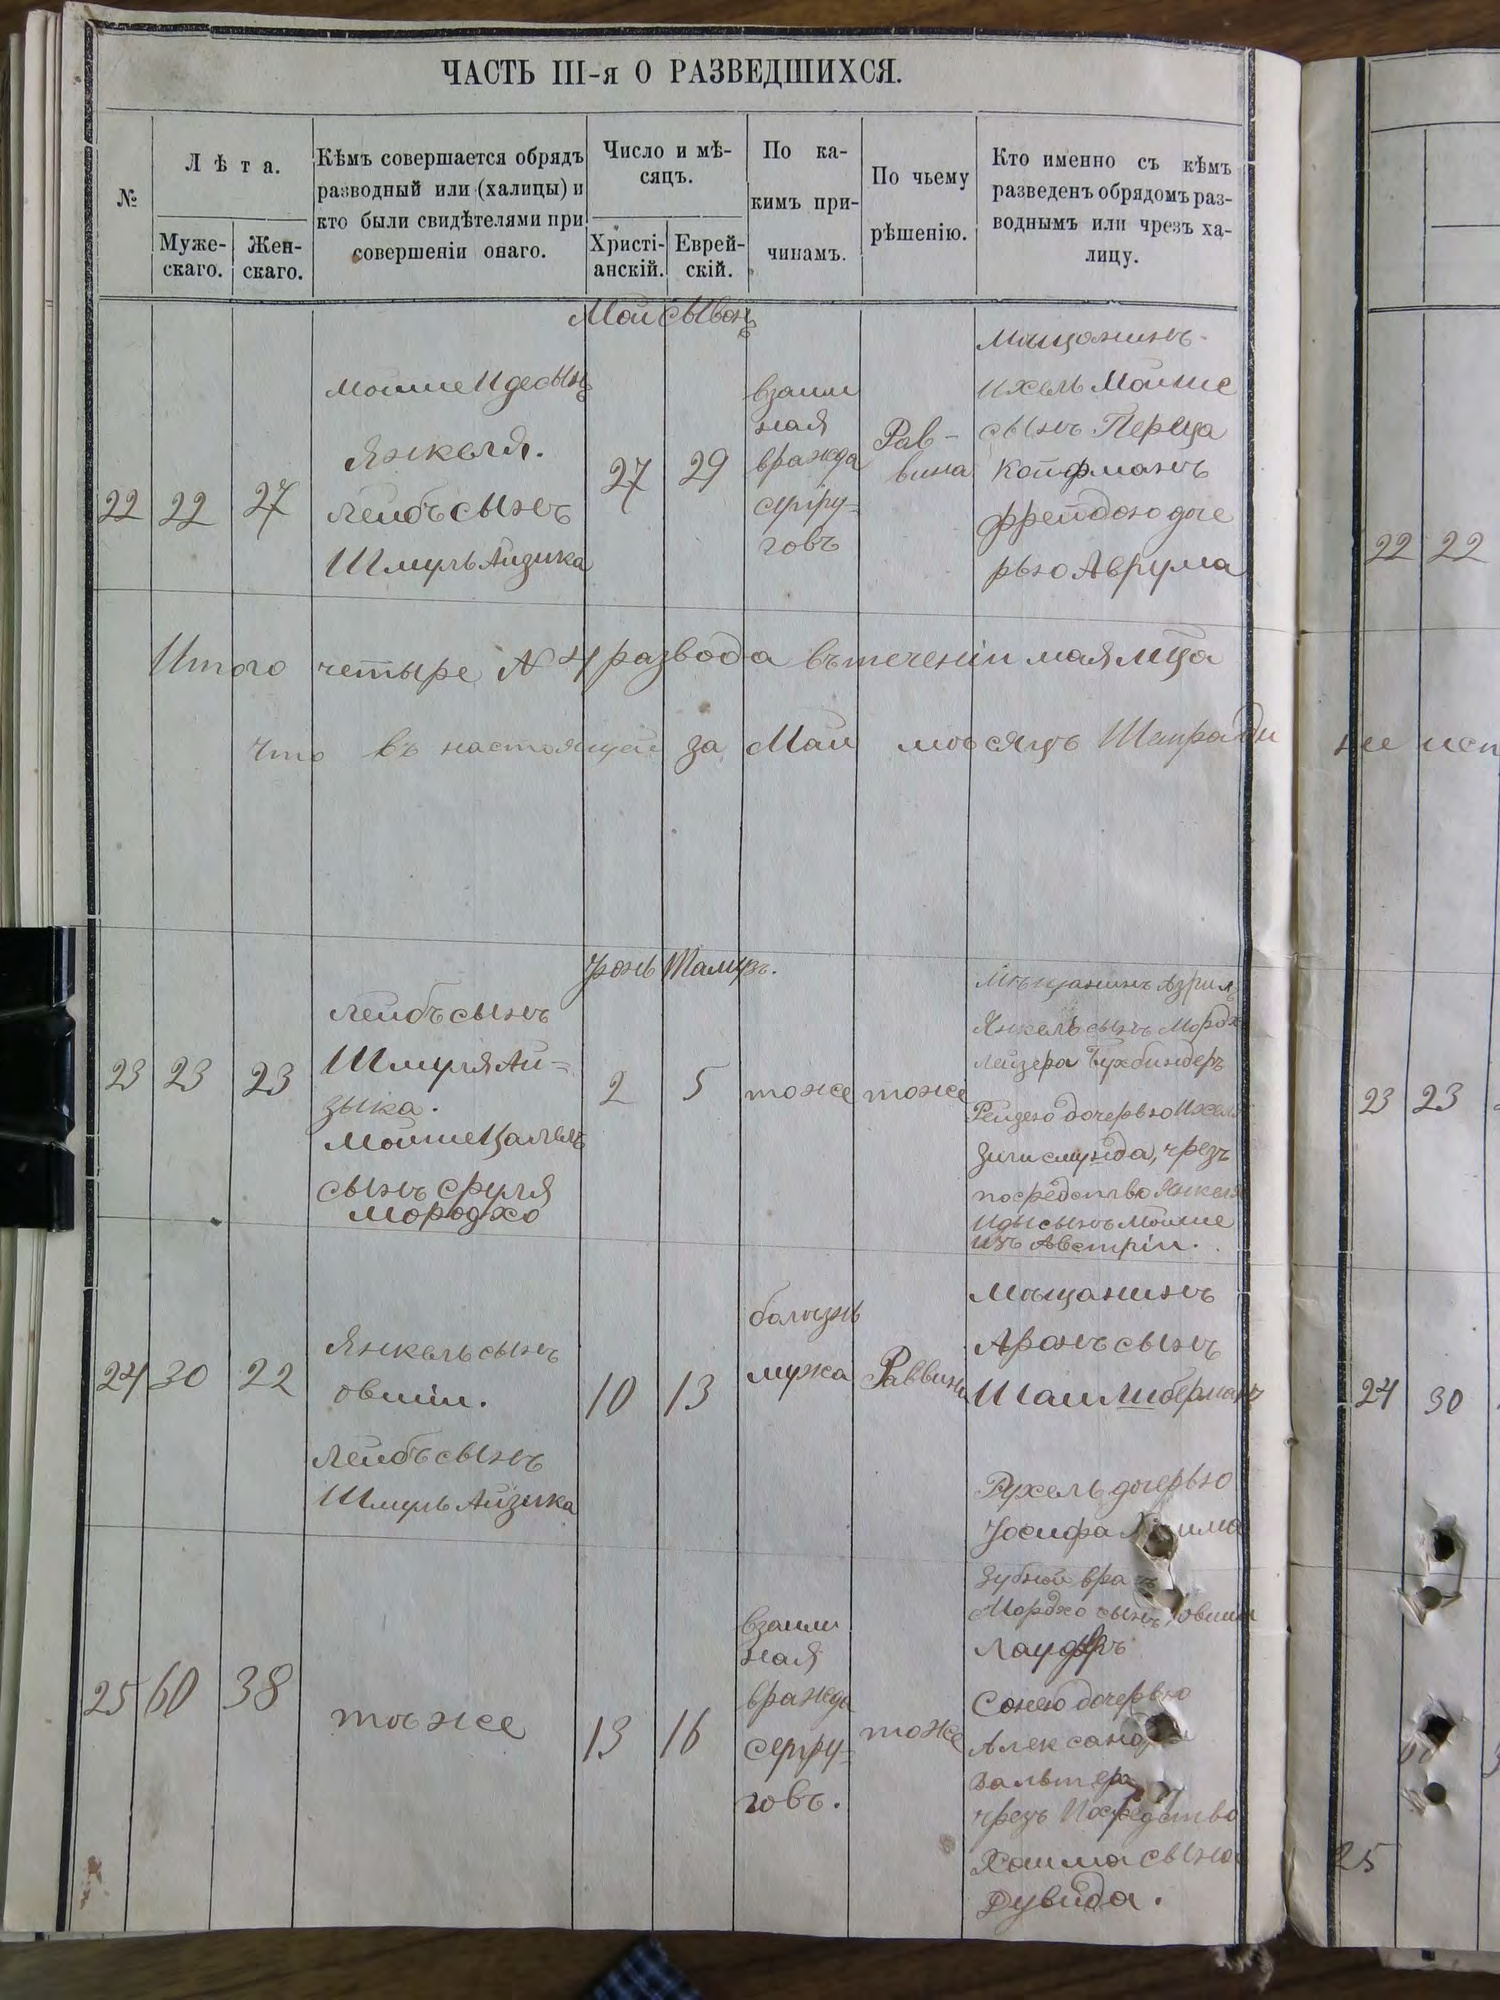 ЧАСТЬ III-я О РАЗВЕДШИХСЯ.
№
Лѣта.
Муже-
скаго.
Жен-
скаго.
Кѣмъ совершается обрядъ
разводный или (халицы) и
кто были свидѣтелями при
совершеніи онаго.
Число и мѣ-
сяцъ.
Христі-
анскій.
Еврей-
скій.
По ка-
кимъ при-
чинамъ.
По чьему
рѣшенію.
Кто именно съ кѣмъ
разведенъ обрядомъ раз-
воднымъ или чрезъ ха-
лицу.
Май Сывонъ
22
22
27
Мойше Иде сынъ
Янкеля.
Лейбъ сынъ
Шмуль Айзика
27
29
взаим
ная
вражда
супру-
говъ
Рав-
вина
Мѣщанинъ
Ихель Мойше
сынъ Перца
Койфманъ
Фрейдою доче
рью Аврума
Итого четыре № 4 развода въ теченіи мая мца
что въ настоящей за Май мѣсяцъ Тетради
Юнь Тамузъ.
23
23
23
Лейбъ сынъ
Шмуля Ай-
зыка.
Мойше Цалель
сынъ сруля
Мородхо
2
5
тоже
тоже
Мѣщанинъ Азриль
Янкель сынъ Мордх
Лейзера Бухбиндеръ
Рейзею дочерью Ихеля
Зигисмунда, чрезъ
посредство Янкеля
Иды сынъ Мойше
изъ Австріи.
24
30
22
Янкель сынъ
овшіи.
Лейбъ сынъ
Шмуль Айзика
10
13
болѣзнь
мужа
Раввина
Мѣщанинъ
Аронъ сынъ
Шаи Либерманъ
Рухель дочерью
Іосифа
25
60
38
тоже
13
16
взаим
ная
вражда
супру-
говъ.
тоже
Зубной вра
Мордхо сынъ овшии
Лаудеръ
Сонею дочерью
Александра
Вальтера
чрезъ Посредство
Хаима сына
Дувида.
22 22
не исп
23 23
24 30
25